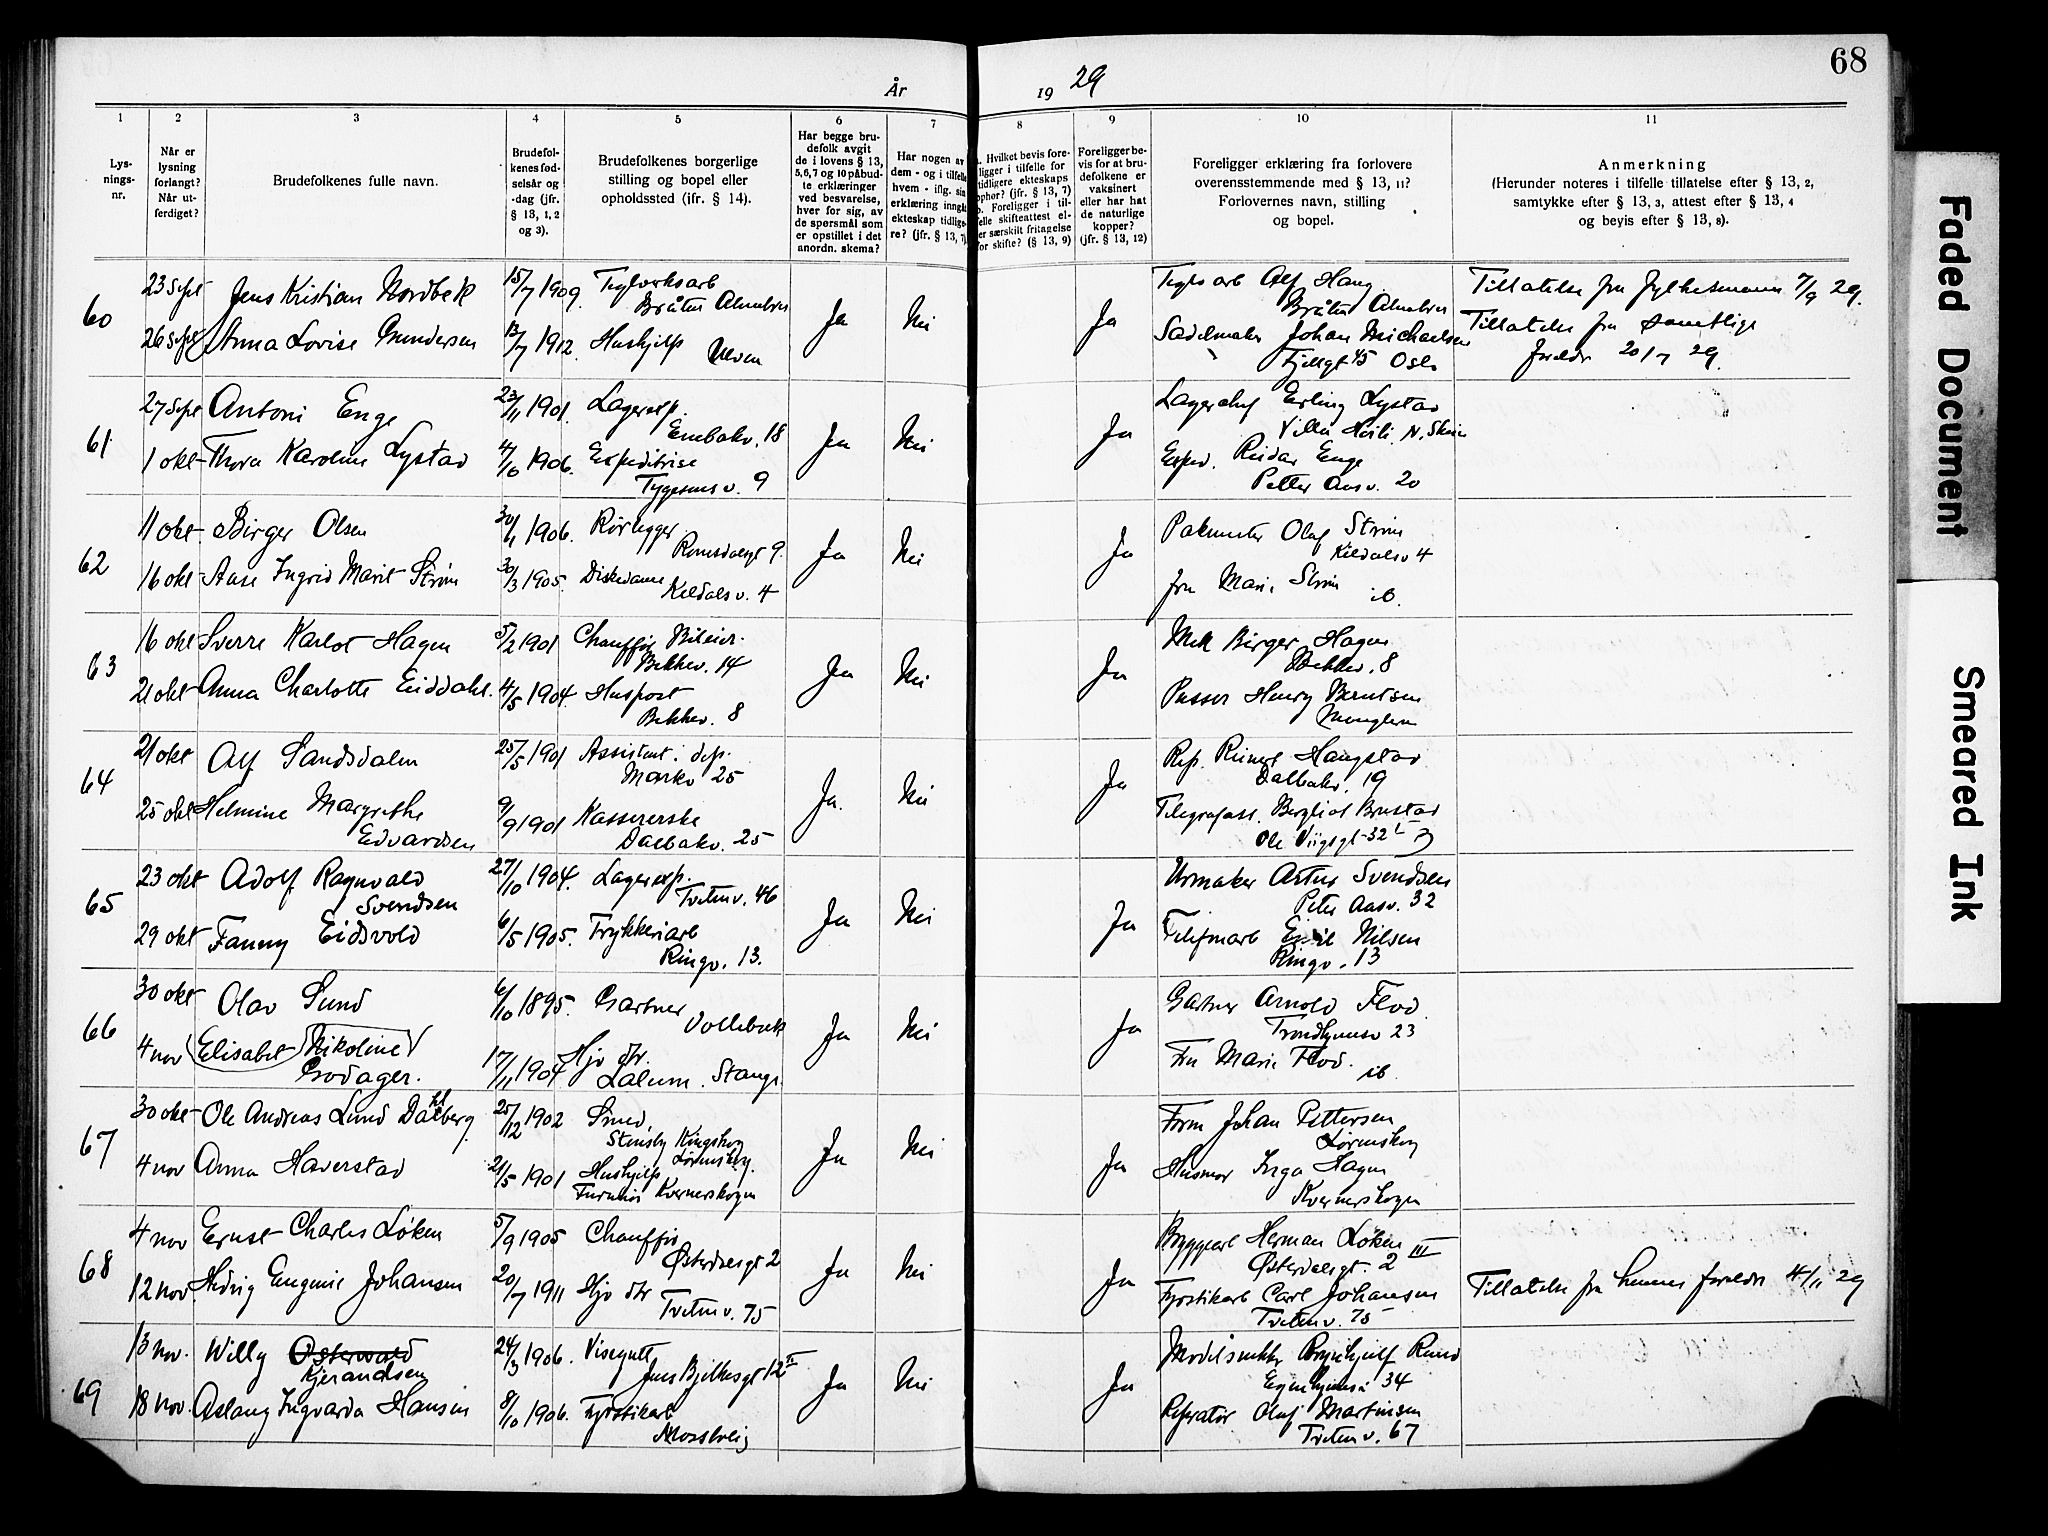 68
År 1929
1
2
3
4
5
6
7
8
9
10
11
Lys-
nings-
nr.
Når er
lysning
forlangt?
Når ut-
ferdiget?
Brudefolkenes fulle navn.
Brudefol-
kenes fød-
selsår og
-dag (jfr.
§ 13, 1, 2
og 3).
Brudefolkenes borgerlige
stilling og bopel eller
opholdssted (ifr. § 14).
Har begge bru-
defolk avgit
de i lovens § 13,
5, 6, 7 og 10 påbud-
te erklæringer
ved besvarelse,
hver for sig, av
de spørsmål som
er opstillet i det
anordn. skema?
Har nogen av
dem - og i tilfelle
hvem - iflg. sin
erklæring inngå
ekteskap tidlige-
re? (jfr. § 13, 7)
a. Hvilket bevis fore-
ligger i tilfelle for
tidligere ekteskaps
ophør? (jfr. § 13, 7)
b. Foreligger i til-
felle skifteattest el-
er særskilt fritagelse
for skifte? (§ 13, 9)
Foreligger be-
vis for at bru-
defolkene er
vaksinert
eller har hat
de naturlige
kopper?
(jfr. § 13, 12)
Foreligger erklæring fra forlovere
overensstemmende med § 13, 11?
Forlovernes navn, stilling
og bopel.
Anmerkning
(Herunder noteres i tilfelle tillatelse efter § 13, 2,
samtykke efter § 13, 3, attest efter § 13, 4
og bevis efter § 13, 8).
60
23 Sept Jens Kristian Nordbek 15/7 1909. Teglverksarb
Bråten Alnabru
26 Sept Anna Lovise Gundersen 13/7 1912. Hushjelp Ulven
Ja Nei Ja
Teglv arb Alf Haug
Bråten Alnabru
Sadelmaker Johan Michaelsen
Fjellgt 45 Oslo
Tillatelse fra Fylkesmann 7/9 29.
Tillatelse fra samtlige
foreldr 20/7 29.
61
27 Sept Antoni Enge 23/11 1901. Lagerexp.
Enebakv. 18
1 okt Thora Karoline Lystad 4/10 1906. Expeditrise
Tygesens v. 9
Ja Nei Ja
Lagerchef Erling Lystad
Villa N. Skøien
Exped. Reidar Enge
Petter Aas v. 20
62
11 okt Birger Olsen 30/1 1906. Rørlegger
Romsdalsgt 9.
16 okt Aase Ingrid Marit Strøm 30/3 1905. Diskedame
Keldals v. 4
Ja Nei Ja
Pakmester Olaf Strøm
Keldalsv 4
fru Marie Strøm
ib.
63
16 okt Sverre Karlot Hagen 5/2 1901 Chauffør Bileier.
Bekkev. 14
21 okt Anna Charlotte Eiddahl. 4/5 1904. Huspost
Bekkev. 8
Ja Nei Ja
Mek Birger Hagen
Bekkev. 8
Passer Henry Berntsen
Manglerud
64
21 okt Alf Sandsdalen 25/5 1901 Assistent i dep.
Markv 25
25 okt Helmine Margrethe
Edvardsen 9/9 1901 Kassererske
Dalbakv. 25
Ja. Nei Ja
Rep. Reinert Haugstad
Dalbakv. 19
Telegrafass. Bergliot Brustad
Ole Viigsgt 32
65
23 okt Adolf Ragnvald
Svendsen 27/10 1904. Lagerexp.
Tvetenv. 46
29 okt Fanny Eidsvold 6/5 1905. Trykkeriarb
Ringv. 13.
Ja Nei Ja
Urmaker Artur Svendsen
Peter Aasv. 32
Telefonarb Emil Nilsen
Ringv. 13
66
30 okt Olav Sund 6/10 1895. Gartner
Vollebæk
4 nov Elisabet (Nikoline)
Godager. 17/11 1904 Hjv dtr.
Lalum. Stange.
Ja Nei Ja
Gartner Arnold Flod.
Trondhjemsv 23
Fru Marie Flod.
ib.
67
30 okt Ole Andreas Lund Dahlberg 25/12 1902 Smed,
Stensby Kingskog
Lørenskog.
4 nov Anna Haverstad 21/5 1901 Hushjelp
Furumo Kvernerskogen
Ja Nei Ja
Form Johan Pettersen
Lørenskog
Husmor Inga Hagen
Kvernerskogen
68
4 nov Ernst Charles Løken 5/9 1905 Chauffør
Østerdalsgt 2
12 nov Hedvig Eugenie Johansen 20/7 1911 Hjv dtr
Tveten v. 75
Ja Nei Ja
Byggearb Herman Løken
Østerdalsgt. 2 III
Fyrstikarb Carl Johansen
Tveten v. 75
Tillatelse fra hennes foreldr 4/11 29
69
13 nov. Willy Østerwold
Kjerandsen 24/3 1906. Visegutt
Jens Bjelkesgt 12 II
18 nov. Aslaug Ingvarda Hansen 8/10 1906. Fyrstikarb
Mosseveig
Ja Nei Ja
Modelsnekker Brynhjulf Ruud
Egnehjemsv 34
Reparatør Olaf Martinsen
Tveten v. 67
Faded Document
Smeared Ink